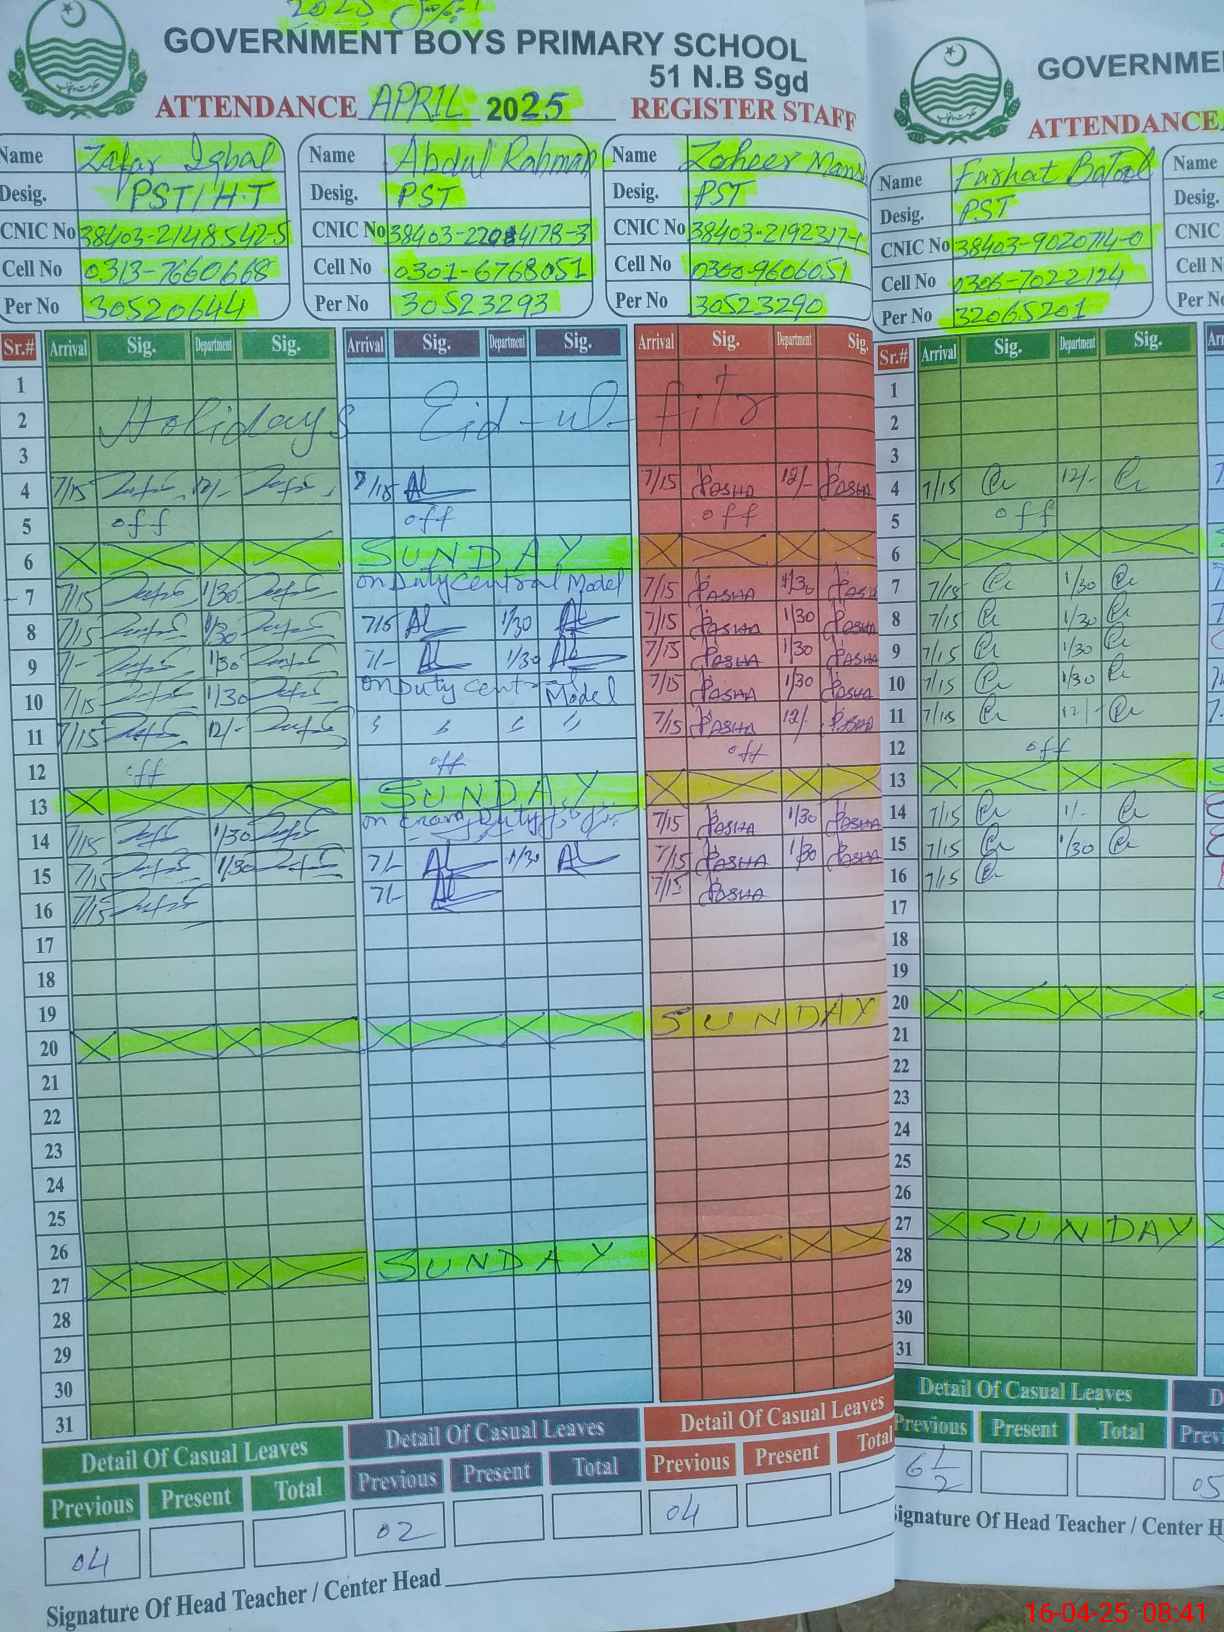 2025
GOVERNMENT BOYS PRIMARY SCHOOL
51 N.B Sgd
ATTENDANCE APRIL 2025 REGISTER STAFF
Name Zafar Iqbal
Desig. PST/H.T
CNIC No 38403-2148542-5
Cell No 0313-7660668
Per No 30520644
Name Abdul Rahman
Desig. PST
CNIC No
Cell No 0301-6768051
Per No 30523293
Name Zaheer
Desig. PST
CNIC No 38403-2192317-1
Cell No 0300-9606051
Per No 30523290
Sr.# Arrival Sig. Department Sig. Arrival Sig. Department Sig. Arrival Sig. Department Sig.
1
2 Holidays Eid-ul-fitr
3
4 7/15 12/- 7/15 7/15 PASHA 12/- PASHA
5 off off off
6 SUNDAY
7 7/15 1/30 on Duty Central Model 7/15 PASHA 1/30 PASHA
8 7/15 1/30 7/15 1/30 7/15 PASHA 1/30 PASHA
9 7/- 1/30 7/- 1/30 7/15 PASHA 1/30 PASHA
10 7/15 1/30 on Duty Central Model 7/15 PASHA 1/30 PASHA
11 7/15 12/- 7/15 PASHA 12/- PASHA
12 off off off
13 SUNDAY
14 7/15 1/30 on Duty 7/15 PASHA 1/30 PASHA
15 7/15 1/30 7/- 1/30 7/15 PASHA 1/30 PASHA
16 7/15 7/- 7/15 PASHA
17
18
19
20 SUNDAY
21
22
23
24
25
26
27 SUNDAY
28
29
30
31
Detail Of Casual Leaves Detail Of Casual Leaves Detail Of Casual Leaves
Previous Present Total Previous Present Total Previous Present Total
04 02 04
Signature Of Head Teacher / Center Head
GOVERNME
ATTENDANCE
Name Farhat Batool
Desig. PST
CNIC No 38403-9020714-0
Cell No 0306-7022124
Per No 32065201
Name
Desig.
CNIC
Cell N
Per No
Sr.# Arrival Sig. Department Sig.
1
2
3
4 7/15 12/-
5 off
6
7 7/15 1/30
8 7/15 1/30
9 7/15 1/30
10 7/15 1/30
11 7/15 12/-
12 off
13
14 7/15 1/-
15 7/15 1/30
16 7/15
17
18
19
20
21
22
23
24
25
26
27 SUNDAY
28
29
30
31
Detail Of Casual Leaves
Previous Present Total
6 1/2 05
Signature Of Head Teacher / Center H
16-04-25 08:41